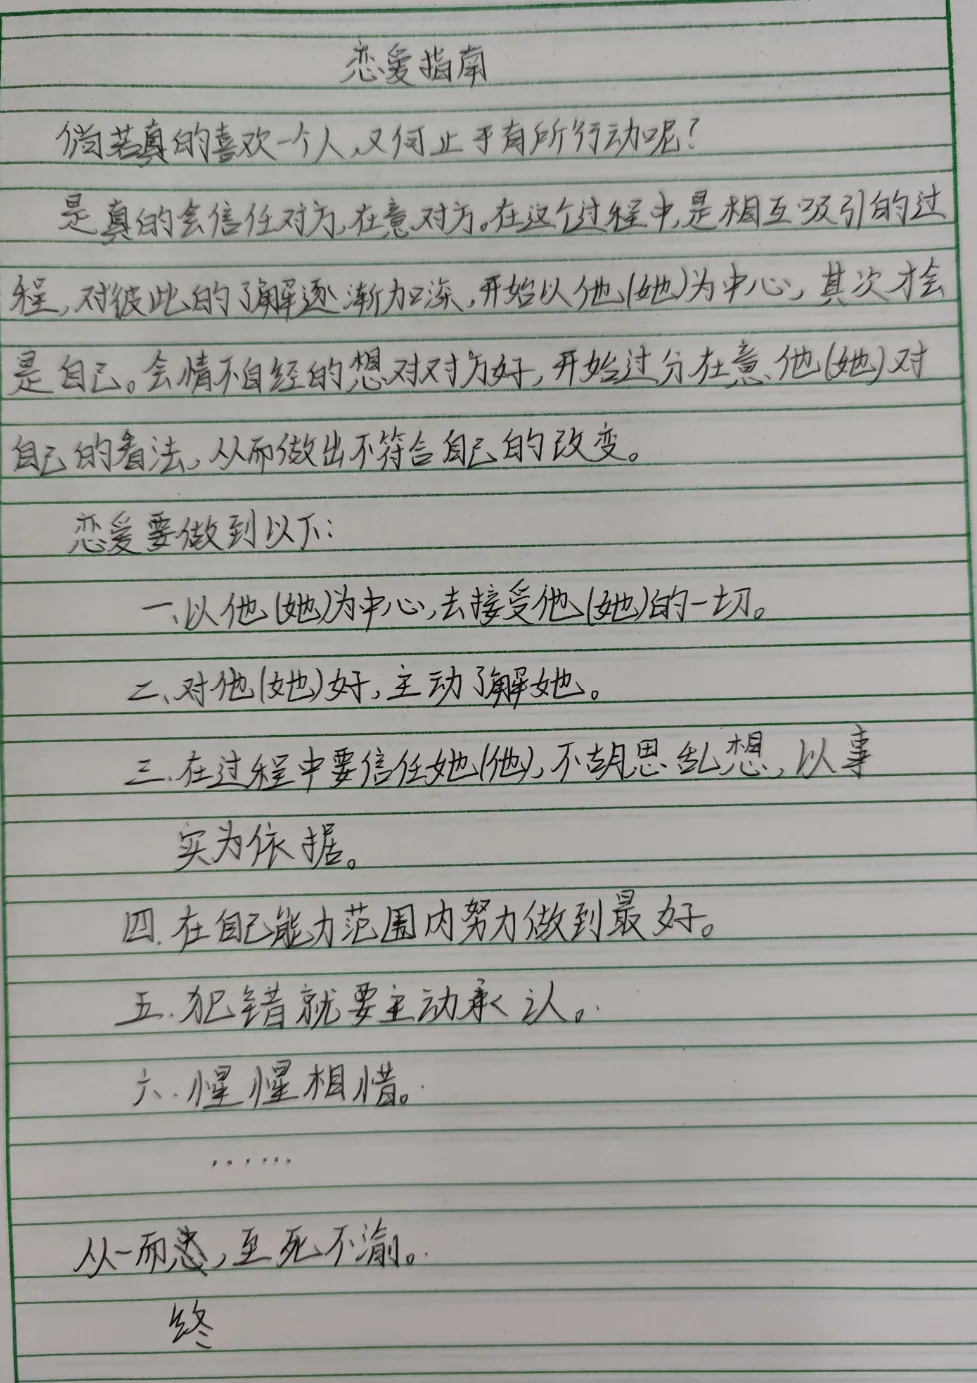 恋爱指南
倘若真的喜欢一个人,又何止于有所行动呢?
是真的会信任对方,在意对方。在这个过程中,是相互吸引的过
程,对彼此的了解逐渐加深,开始以他(她)为中心,其次才会
是自己。会情不自经的想对对方好,开始过分在意他(她)对
自己的看法,从而做出不符合自己的改变。
恋爱要做到以下:
一、以他(她)为中心,去接受他(她)的一切。
二、对他(她)好,主动了解她。
三.在过程中要信任她(他),不胡思乱想,以事
实为依据。
四.在自己能力范围内努力做到最好。
五.犯错就要主动承认。
六.惺惺相惜。
......
从一而,至死不渝。
终